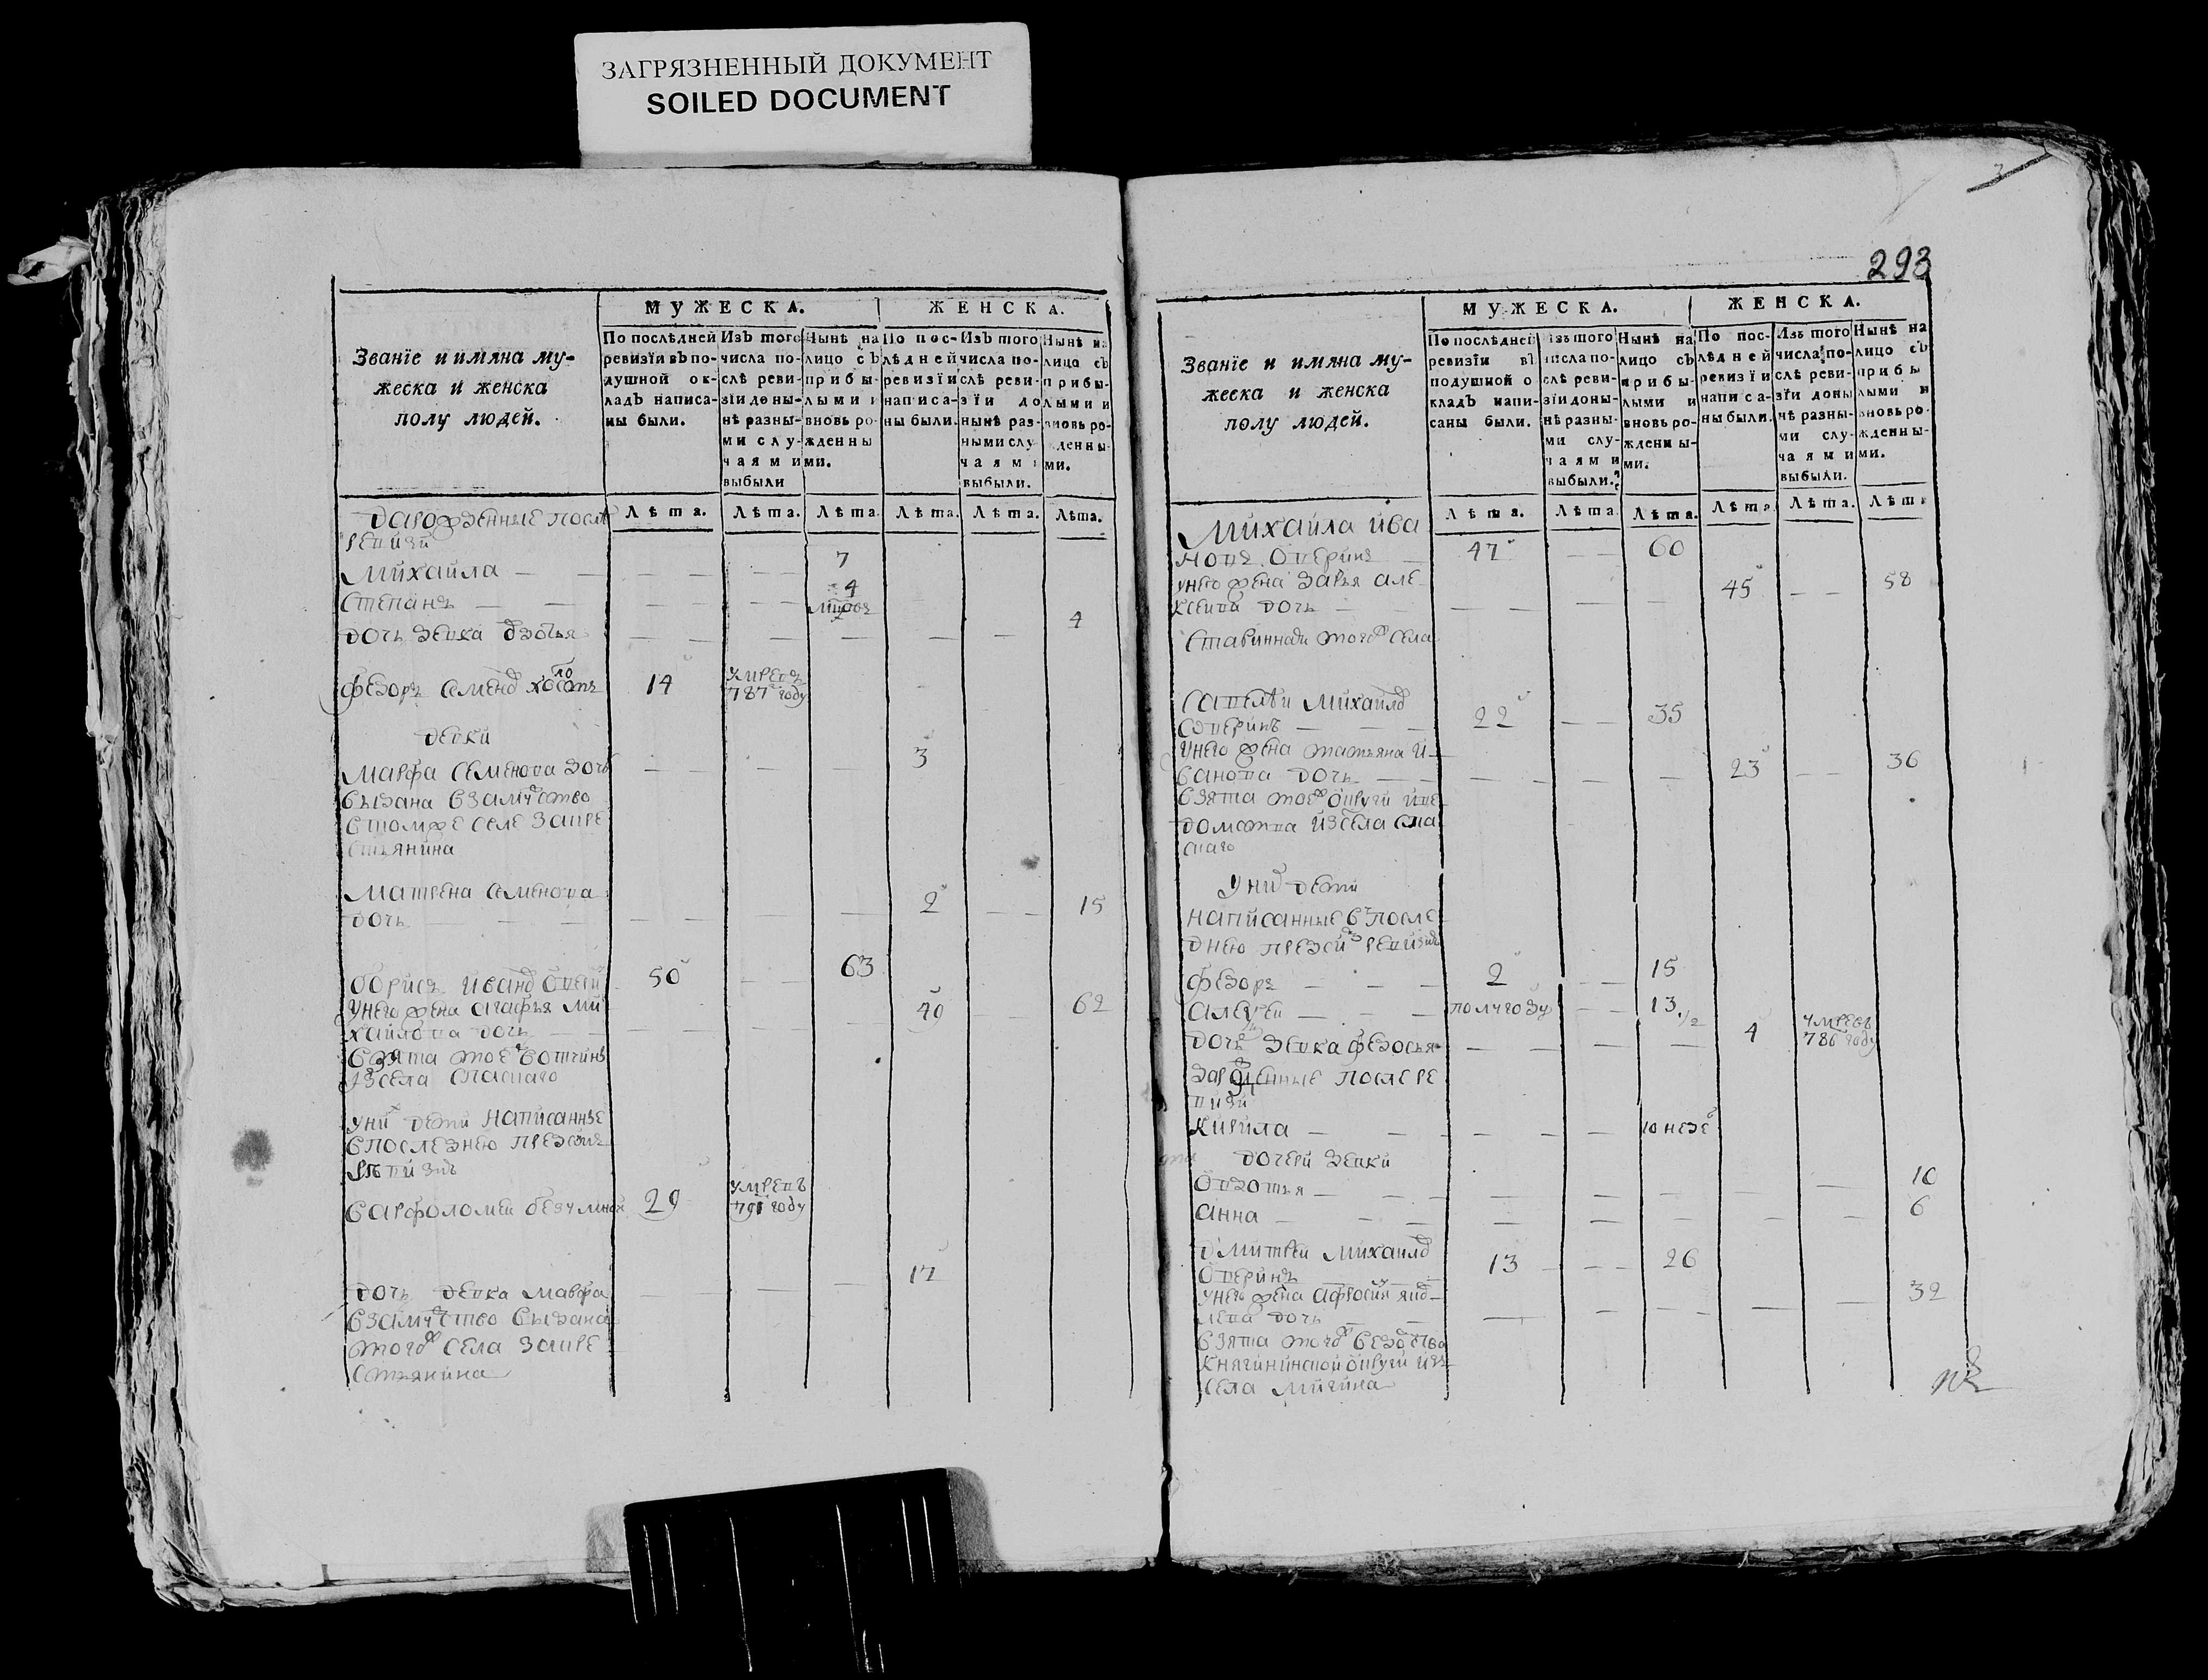 ЗАГРЯЗНЕННЫЙ ДОКУМЕНТ
SOILED DOCUMENT
Званїе и имяна му-
жеска и женска
полу людей.
МУЖЕСКА.
ЖЕНСКА.
По послѣдней ревизїи въ по-душной ок-ладъ написа-ны были.
Изъ того числа по-слѣ реви-зїи доны-нѣ разны-ми слу-чаями выбыли
Нынѣ на лицо съ прибы-лыми и вновь ро-жденны-ми.
По пос-лѣдней ревизїи написа-ны были.
Изъ того числа по-слѣ реви-зїи до нынѣ раз-ными слу-чаями выбыли.
Нынѣ на лицо съ прибы-лыми и вновь ро-жденны-ми.
Лѣта. Лѣта. Лѣта. Лѣта. Лѣта. Лѣта.
после
ревизи
Михайла 7
Степанъ 4
дочь девка 4
Федоръ Семенов холостъ 14 умревъ 787 году
девки
Марфа Семенова дочь 3
выдана взамуство
втомже селе закре
стьянина
Матрена Семенова
дочь 2 15
Борисъ Иванов 50 63
унего жена Агафья Ми
хайлова дочь 49 62
взята тоеж вотчины
изсела Спаскаго
уних дети написанные
впоследнею пред сим
ревизию
Варфоломей безумной 29 умревъ 791 году
дочь девка Мавра 17
взамуство выдана
тогож села закре
стьянина
293
Званїе и имяна му-
жеска и женска
полу людей.
МУЖЕСКА.
ЖЕНСКА.
По послѣдней ревизїи въ подушной о кладъ напи-саны были.
Изъ того числа по-слѣ реви-зїи доны-нѣ разны-ми слу-чаями выбыли.
Нынѣ на лицо съ прибы-лыми и вновь ро-жденны-ми.
По пос-лѣдней ревизїи написа-ны были.
Изъ того числа по-слѣ реви-зїи доны нѣ разны-ми слу-чаями выбыли.
Нынѣ на лицо съ прибы лыми и вновь ро-жденны-ми.
Лѣта. Лѣта. Лѣта. Лѣта. Лѣта. Лѣта.
Михайла Ива
новъ Аверинъ 47 60
унего жена Дарья Але
ксеива дочь 45 58
тогож села
Савелѣй Михайлов
Аверинъ 22 35
унего жена Татьяна И
ванова дочь 23 36
взята тоеж округи изве
домства изсела Спа
скаго
уних дети
написанные впосле
днею пред сим ревизию
Федоръ 2 15
Алексей полугоду 13 1/2
дочь девка Федосья 4 умревъ 786 году
зарожденные после ре
визи
Кирила 10 неде
дочери девки
Авдотья 10
Анна 6
Дмитрей Михайлов
Аверинъ 13 26
унего жена Афросинья Яков
лева дочь 32
взята тогож ведомства
Княгининской округи изъ
села Мигина